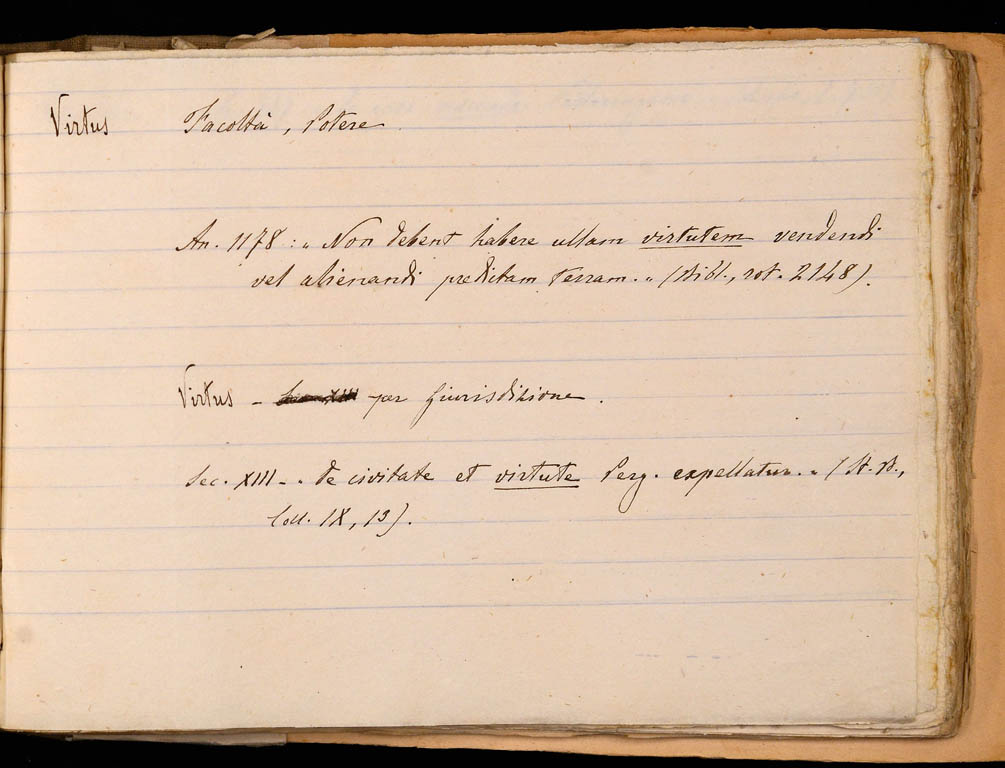 Virtus Facoltà, Potere
An. 1178: „ Non debent habere ullam virtutem vendendi
vel alienandi preditam terram. „ (Bibl., rot. 2148).
Virtus – per giurisdizione.
Sec. XIII – „ de civitate et virtute Perg. expellatur. „ (St. B.,
Coll. IX, 13).